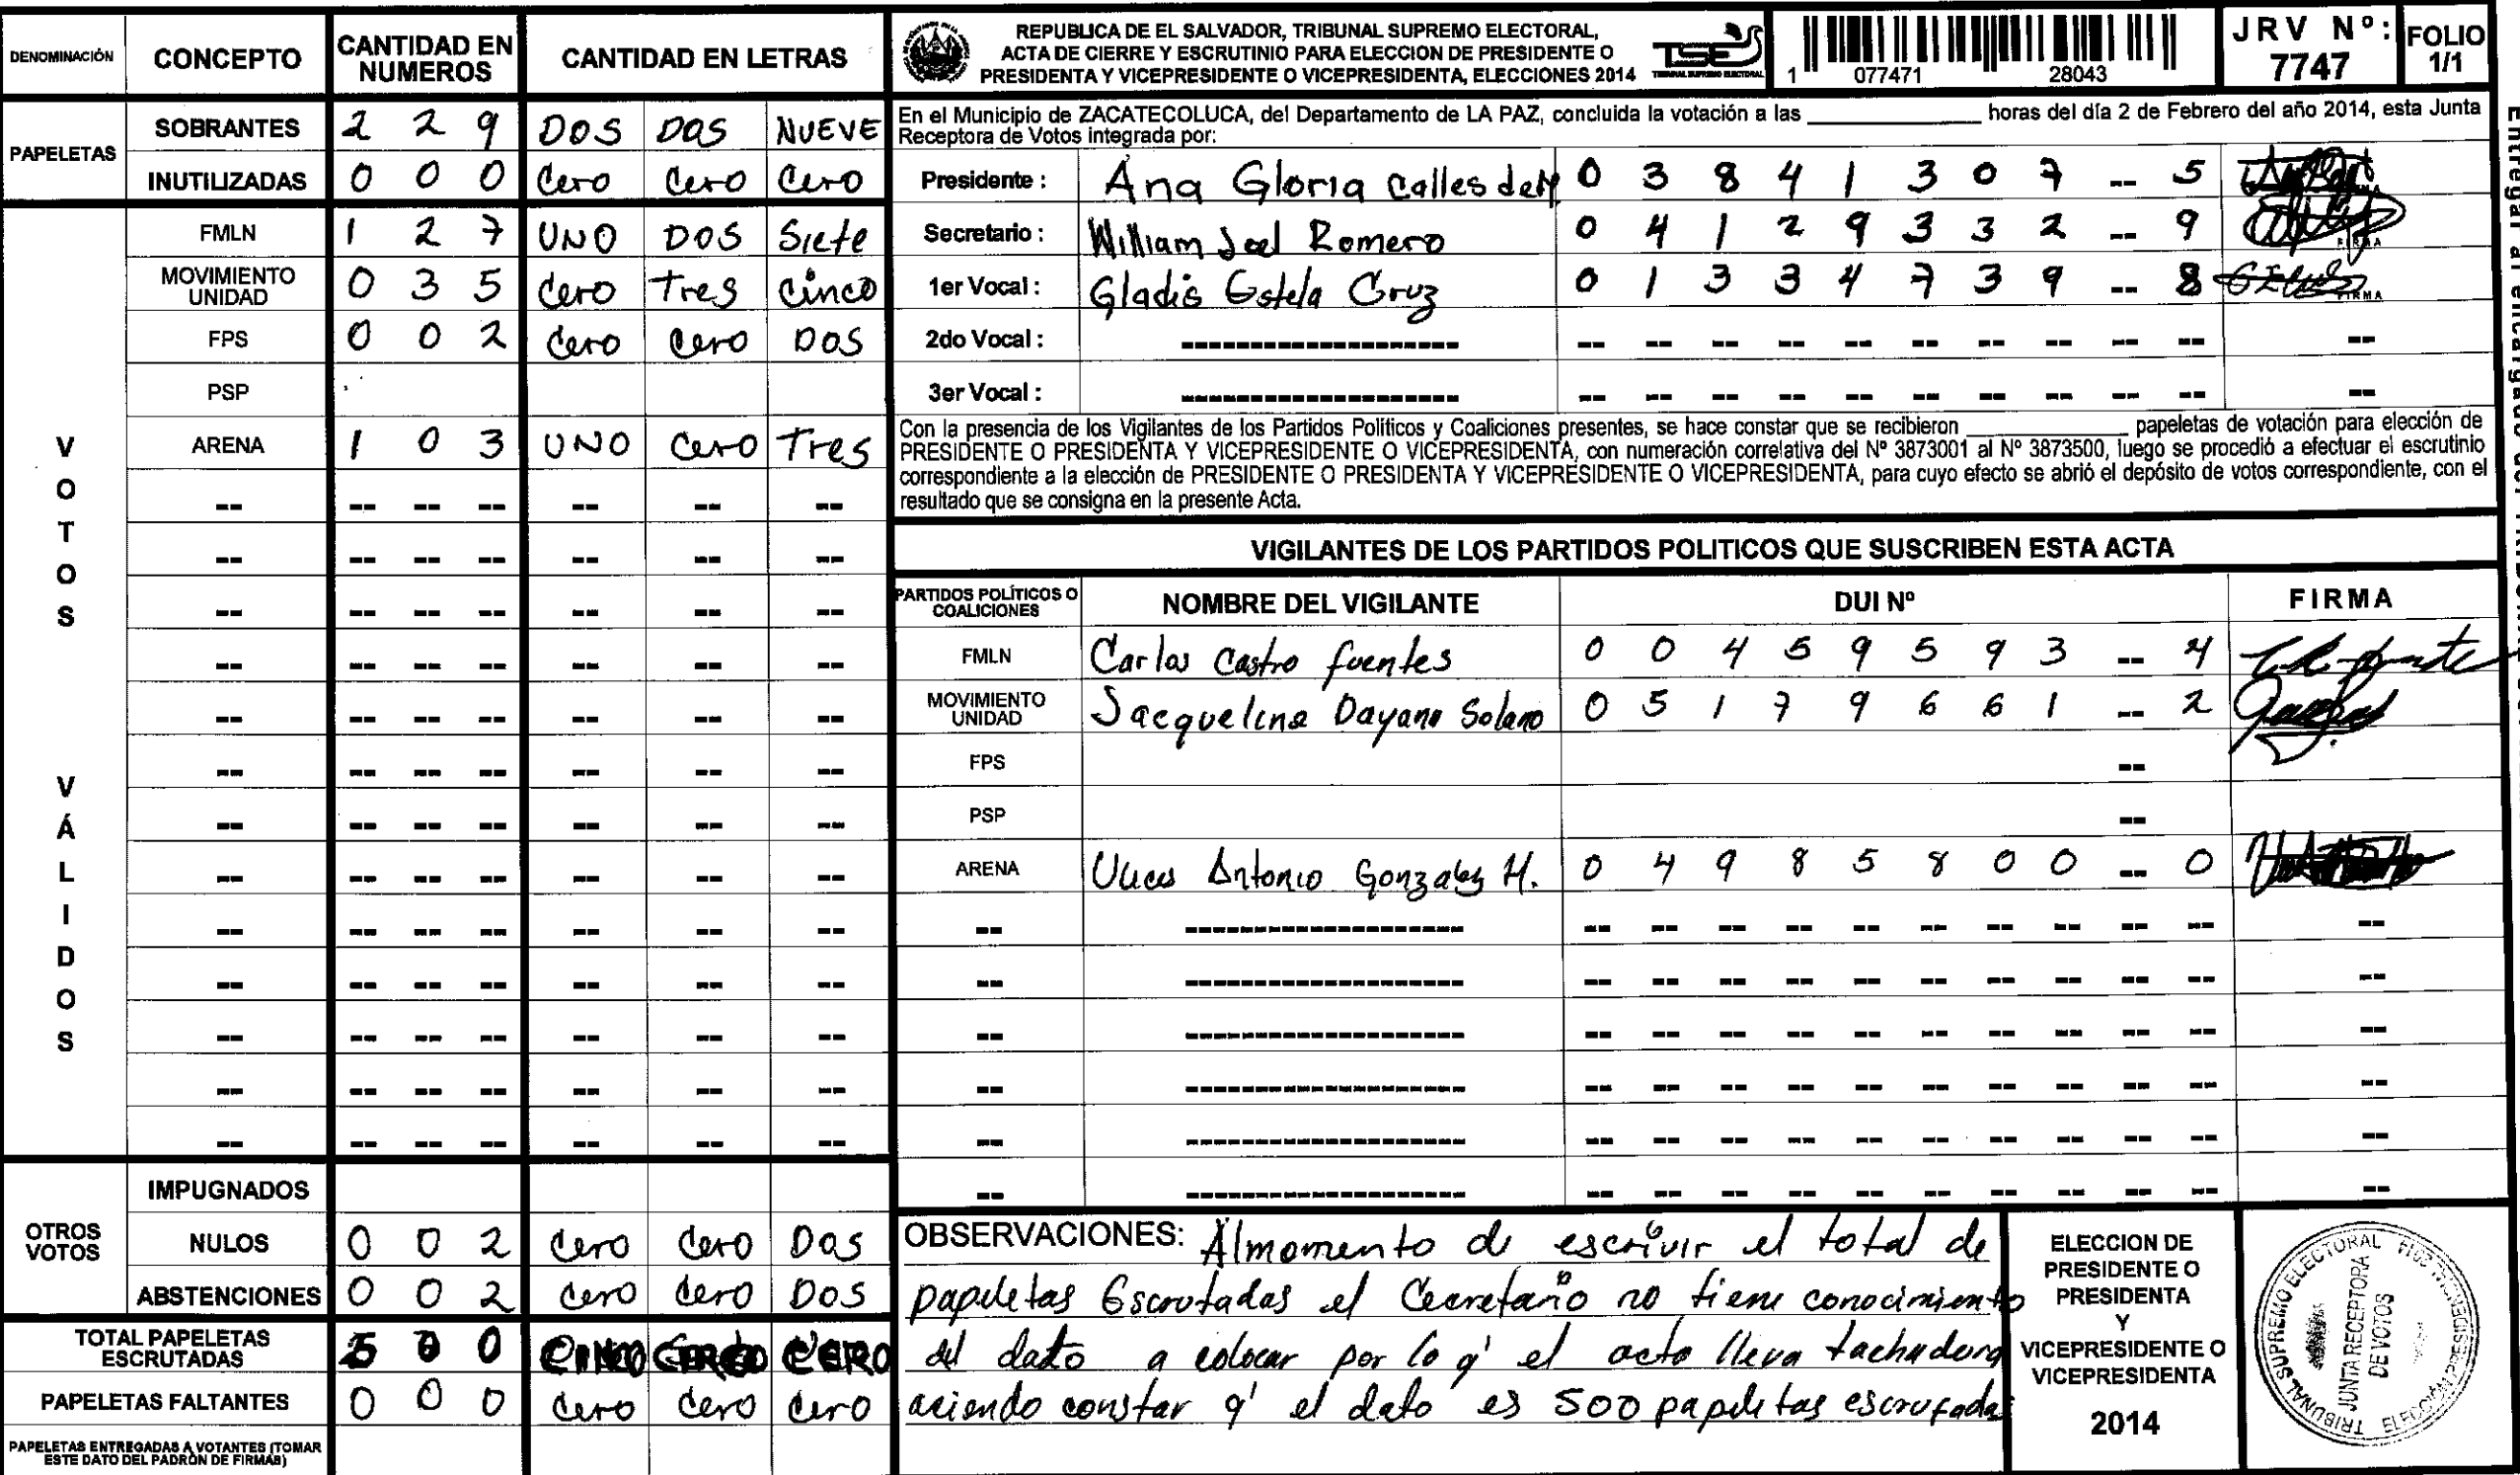 DENOMINACIÓN CONCEPTO CANTIDAD EN NUMEROS CANTIDAD EN LETRAS
PAPELETAS
SOBRANTES 2 2 9 DOS DOS NUEVE
INUTILIZADAS 0 0 0 Cero Cero Cero
VOTOS VÁLIDOS
FMLN 1 2 7 UNO DOS Siete
MOVIMIENTO UNIDAD 0 3 5 Cero Tres Cinco
FPS 0 0 2 Cero Cero DOS
PSP
ARENA 1 0 3 UNO Cero Tres
OTROS VOTOS
IMPUGNADOS
NULOS 0 0 2 Cero Cero Dos
ABSTENCIONES 0 0 2 Cero Cero DOS
TOTAL PAPELETAS ESCRUTADAS 5 0 0 CINCO CERO CERO
PAPELETAS FALTANTES 0 0 0 Cero Cero Cero
PAPELETAS ENTREGADAS A VOTANTES (TOMAR
ESTE DATO DEL PADRÓN DE FIRMAS)
REPUBLICA DE EL SALVADOR, TRIBUNAL SUPREMO ELECTORAL,
ACTA DE CIERRE Y ESCRUTINIO PARA ELECCION DE PRESIDENTE O
PRESIDENTA Y VICEPRESIDENTE O VICEPRESIDENTA, ELECCIONES 2014
TSE
TRIBUNAL SUPREMO ELECTORAL
1 077471 28043
JRV Nº: 7747
FOLIO 1/1
En el Municipio de ZACATECOLUCA, del Departamento de LA PAZ, concluida la votación a las ____ horas del día 2 de Febrero del año 2014, esta Junta
Receptora de Votos integrada por:
Presidente : Ana Gloria Calles de 0 3 8 4 1 3 0 7 -- 5
Secretario : William Joel Romero 0 4 1 2 9 3 3 2 -- 9 FIRMA
1er Vocal : Gladis Estela Cruz 0 1 3 3 4 7 3 9 -- 8 FIRMA
2do Vocal :
3er Vocal :
Con la presencia de los Vigilantes de los Partidos Políticos y Coaliciones presentes, se hace constar que se recibieron ____ papeletas de votación para elección de
PRESIDENTE O PRESIDENTA Y VICEPRESIDENTE O VICEPRESIDENTA, con numeración correlativa del Nº 3873001 al Nº 3873500, luego se procedió a efectuar el escrutinio
correspondiente a la elección de PRESIDENTE O PRESIDENTA Y VICEPRESIDENTE O VICEPRESIDENTA, para cuyo efecto se abrió el depósito de votos correspondiente, con el
resultado que se consigna en la presente Acta.
VIGILANTES DE LOS PARTIDOS POLITICOS QUE SUSCRIBEN ESTA ACTA
PARTIDOS POLÍTICOS O COALICIONES NOMBRE DEL VIGILANTE DUI Nº FIRMA
FMLN Carlos Castro fuentes 0 0 4 5 9 5 9 3 -- 4
MOVIMIENTO UNIDAD Jacqueline Dayana Solano 0 5 1 7 9 6 6 1 -- 2
FPS --
PSP --
ARENA Ulices Antonio Gonzalez H. 0 4 9 8 5 8 0 0 -- 0
OBSERVACIONES: Al momento de escrivir el total de
papeletas Escrutadas el Cecretario no tiene conocimiento
del dato a colocar por lo q' el acta lleva tachadura
aciendo constar q' el dato es 500 papeletas escrutadas
ELECCION DE
PRESIDENTE O
PRESIDENTA
Y
VICEPRESIDENTE O
VICEPRESIDENTA
2014
TRIBUNAL SUPREMO ELECTORAL
JUNTA RECEPTORA
DE VOTOS